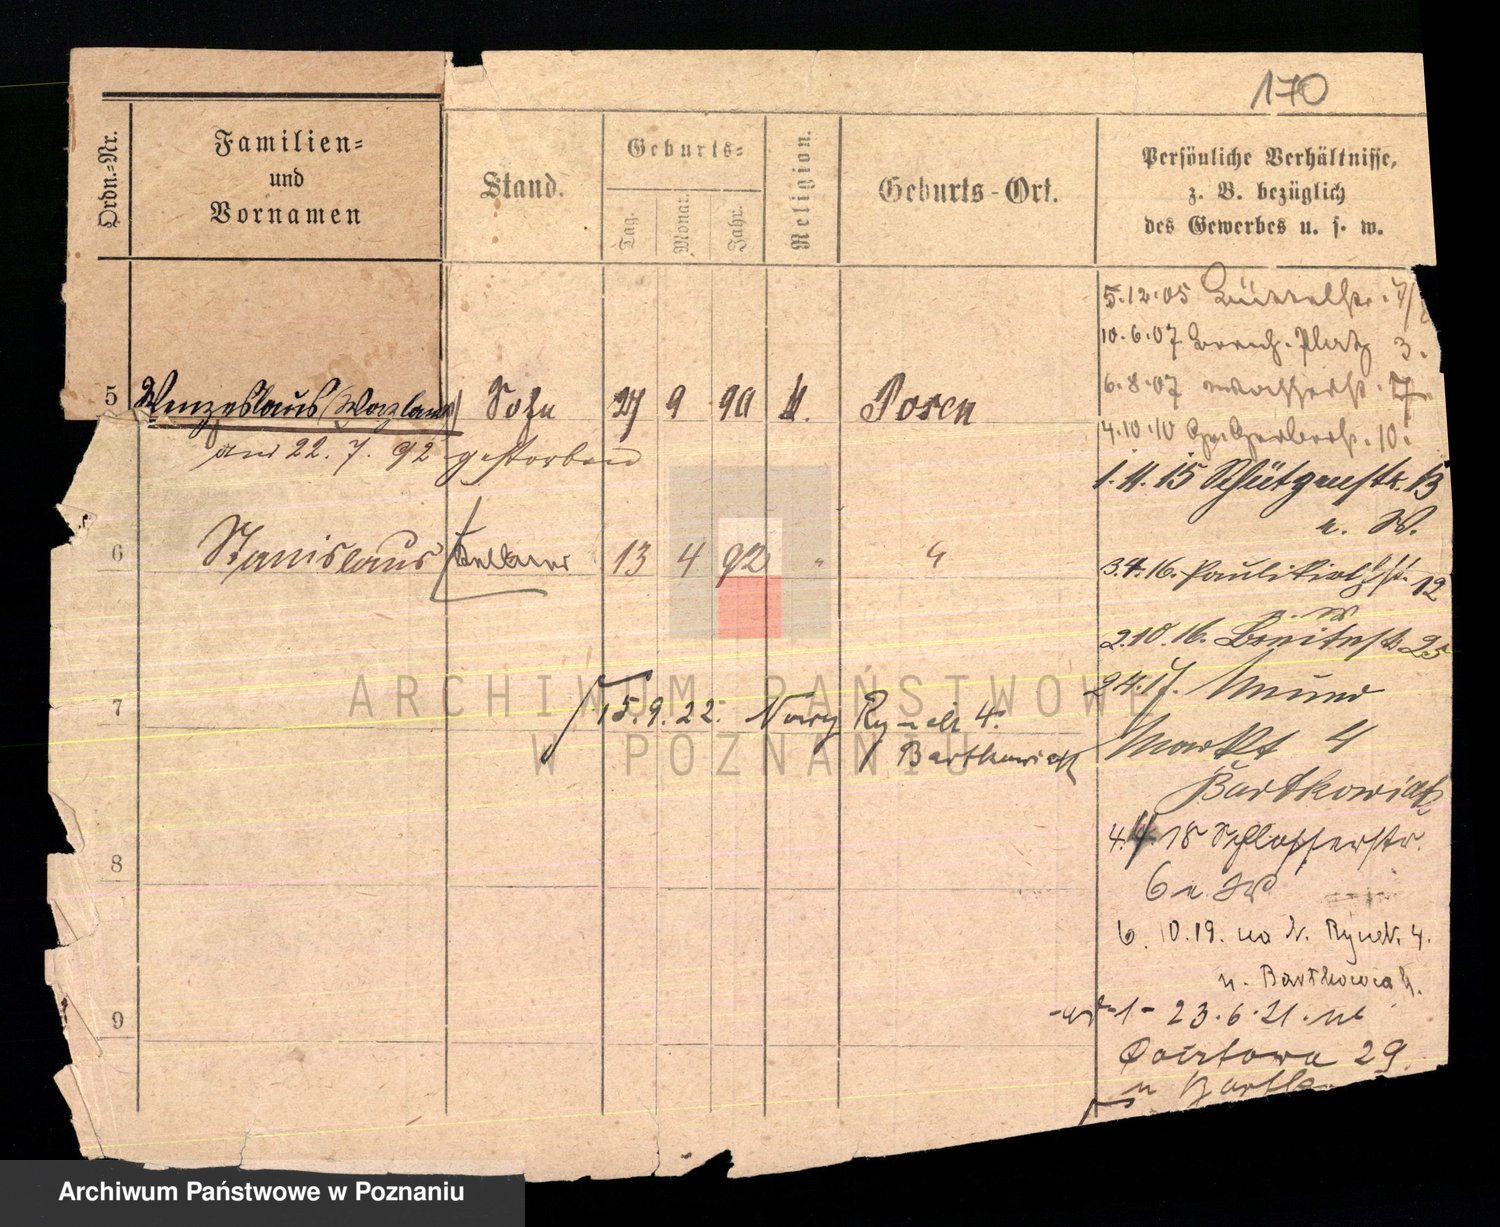 170
Ordn.-Nr.
Familien-
und
Vornamen
Stand.
Geburts-
Tag.
Monat.
Jahr.
Religion.
Geburts-Ort.
Persönliche Verhältnisse,
z. B. bezüglich
des Gewerbes u. s. w.
5 Wenzeslaus (Wazlaus) Sohn 27 9 90 k. Posen
am 22. 7. 92 gestorben
6 Stanislaus Kellner 13 4 92 " "
7
15.9.22. Nowy Rynek 4.
Bartkowiak
8
9
5.12.05 Büttelstr. 7/
10.6.07 Platz 3.
6.8.07 Wasserstr. 7
4.10.10 Gr. Gerberstr. 10.
1.11.15 Schützenstr. 13
u. W.
3.4.16. Paulikirchstr. 12
u. W.
2.10.16. Breitestr. 25
2.4.17. Neuer
Markt 4
Bartkowiak
4.4.18 Schlosserstr.
6 u. W
6.10.19. na N. Rynek 4.
u. Bartkowiak.
23.6.21. na
Pocztowa 29.
u Bartko
ARCHIWUM PAŃSTWOWE
W POZNANIU
Archiwum Państwowe w Poznaniu